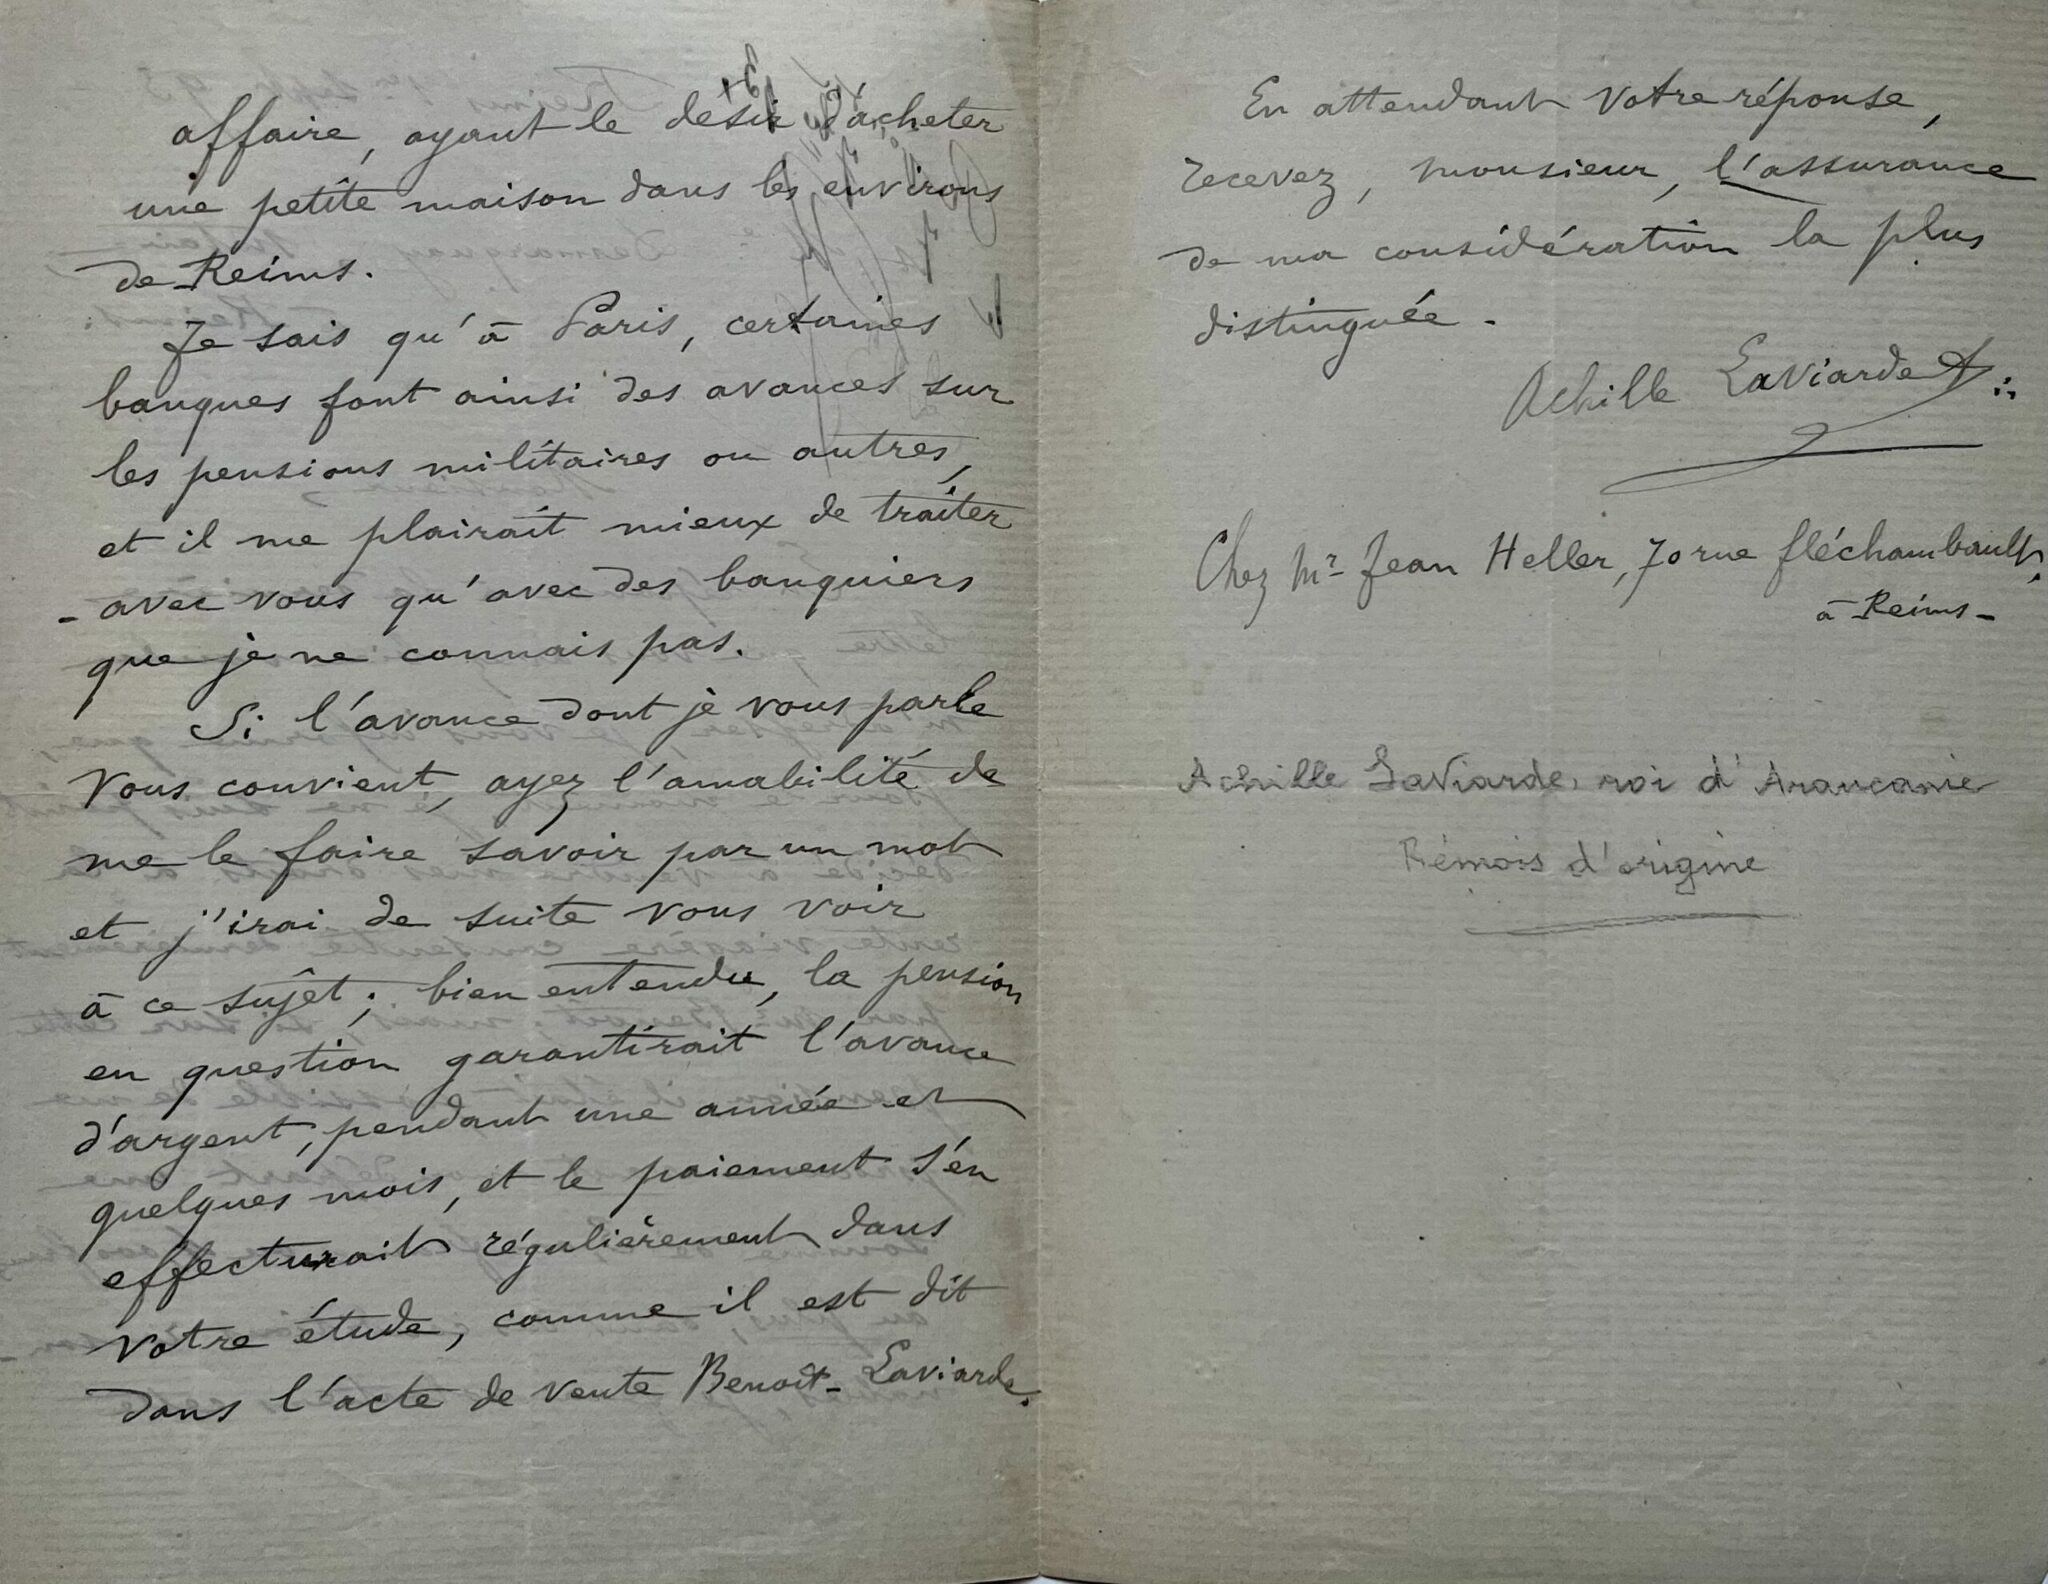 affaire, ayant le désir d'acheter
une petite maison dans les environs
de Reims.
Je sais qu'à Paris, certaines
banques font ainsi des avances sur
les pensions militaires ou autres,
et il me plairait mieux de traiter
avec vous qu'avec des banquiers
que je ne connais pas.
Si l'avance dont je vous parle
vous convient, ayez l'amabilité de
me le faire savoir par un mot
et j'irai de suite vous voir
à ce sujet; bien entendu, la pension
en question garantirait l'avance
d'argent, pendant une année et
quelques mois, et le paiement s'en
effecturait régulièrement dans
votre étude, comme il est dit
dans l'acte de vente Benoît-Laviarde.
En attendant votre réponse,
recevez, monsieur, l'assurance
de ma considération la plus
distinguée.
Achille Laviarde
Chez Mr Jean Heller, 70 rue fléchambault,
à Reims-
Achille Laviarde, roi d'Araucanie
Rémois d'origine